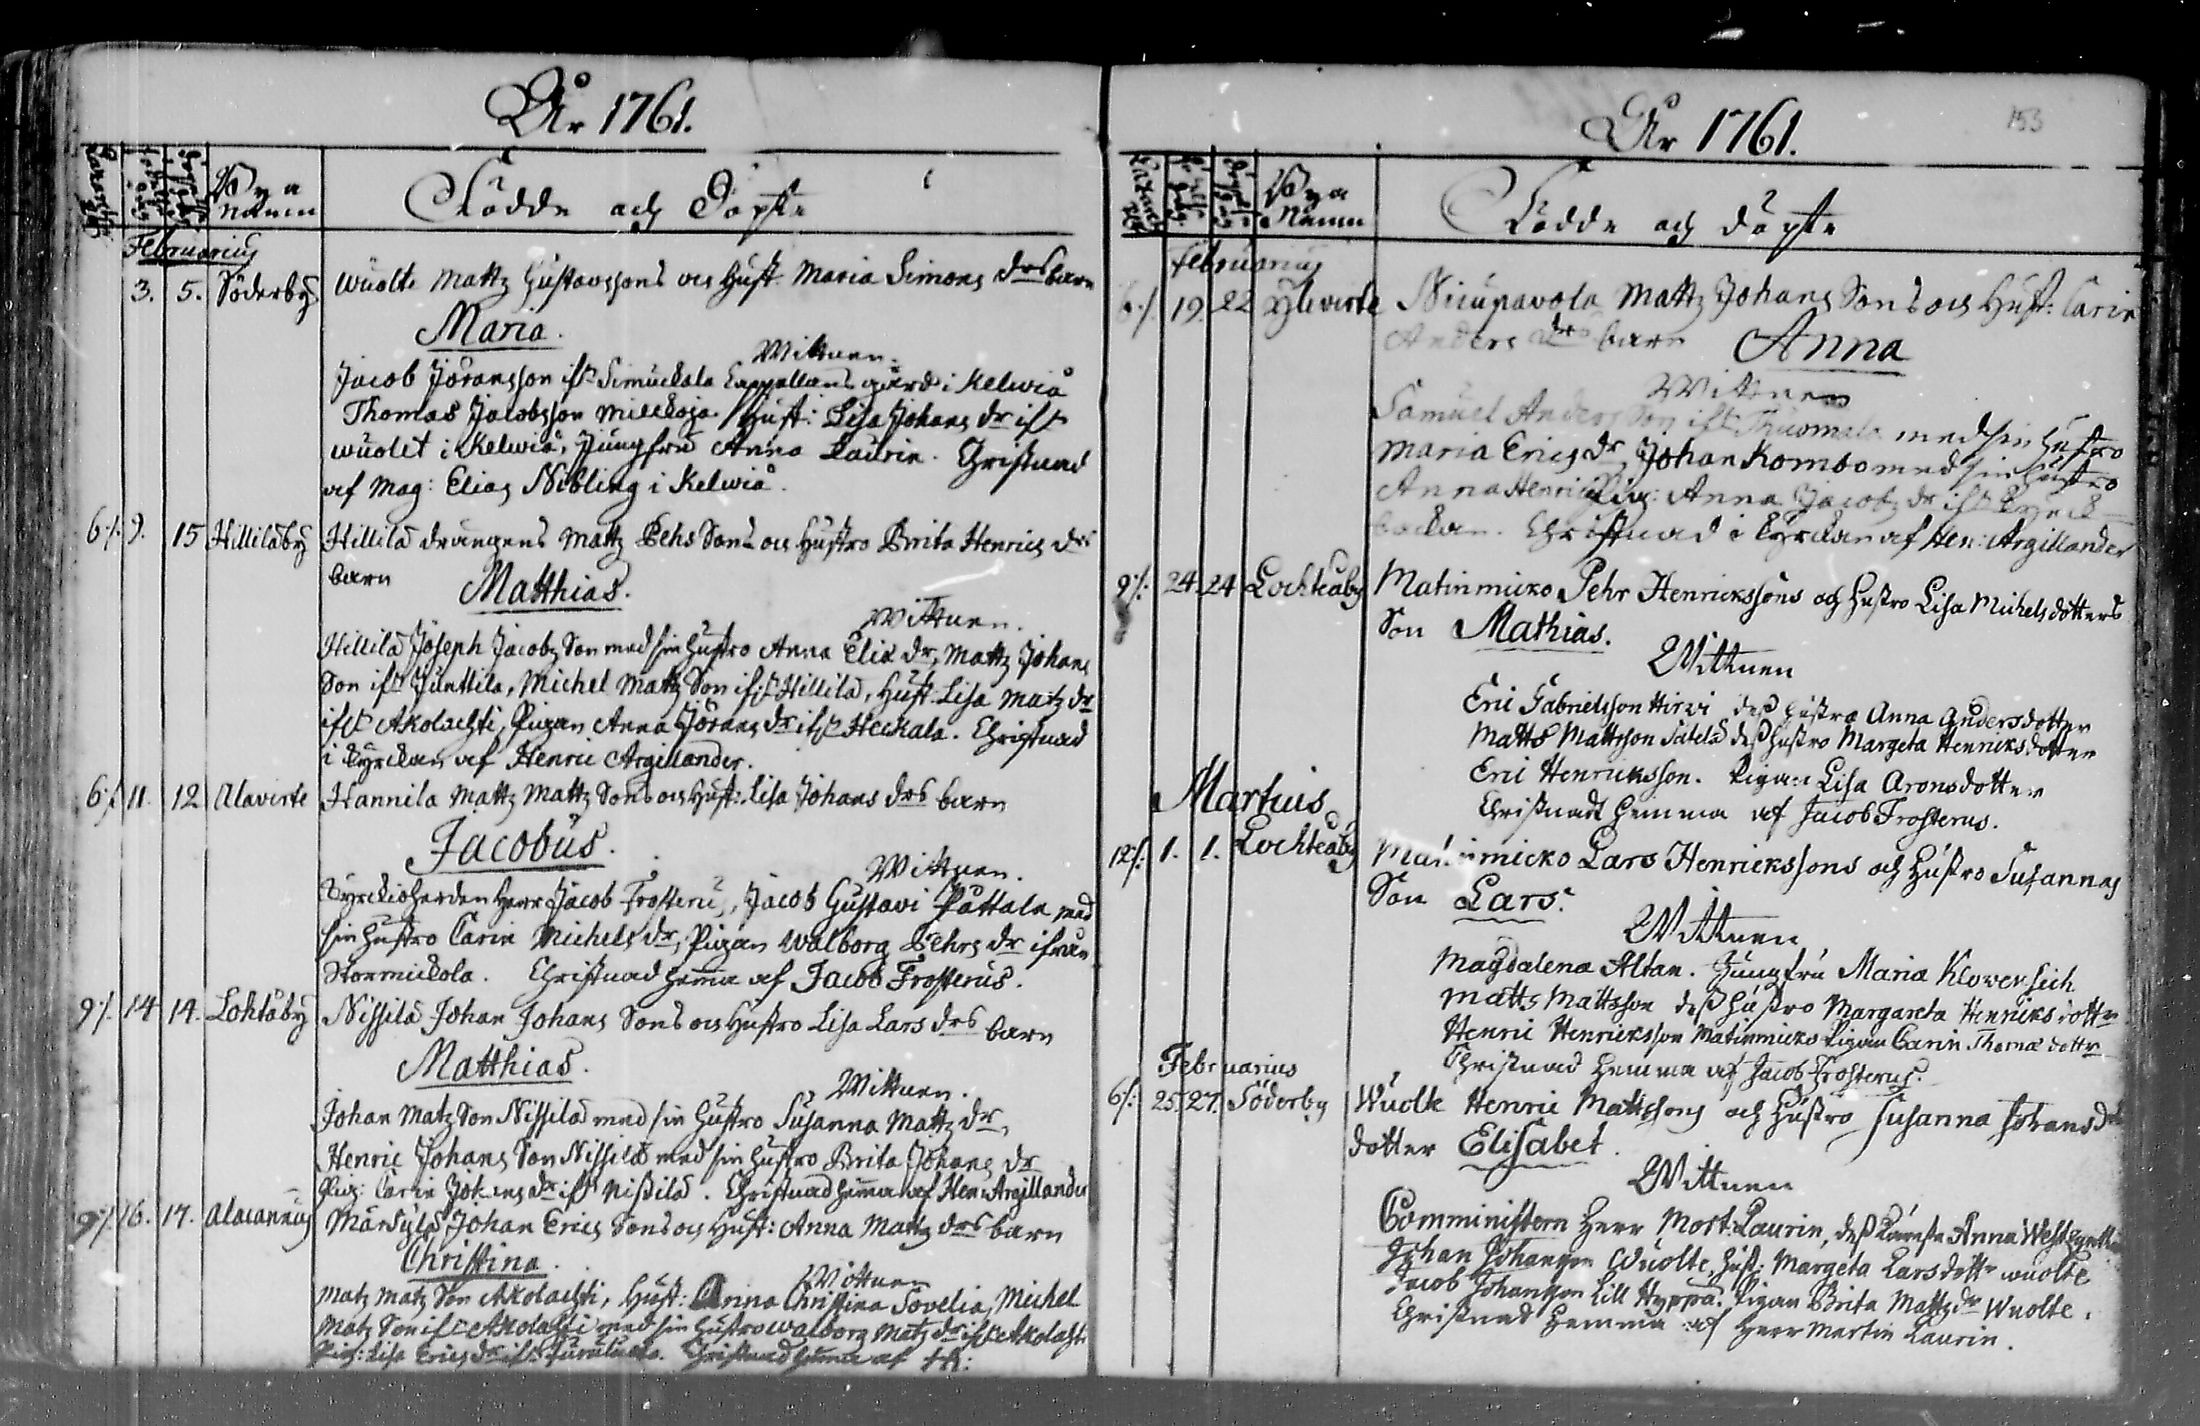 År 1761.
Bya Namn
Födde och Döpte
Februarius
3. 5. Söderby Wuolte Mattz Gustavssons och Hust. Maria Simons drs barn
Maria.
Wittnen.
Jacob Jöransson ifr Simuckala Cappellans gärd i Kelwiå
Thomas Jacobsson Mieckoja. Hust: Lisa Johans dr ifr
Wuolet i Kelwiå, Jungfru Anna Laurin. Christnad
af Mag: Elias Nibling i Kelwiå.
6./. 9. 15 Hillilåby Hillilä drängens Mattz Pehs Sons och Hustro Brita Henrics drs
barn Matthias.
Wittnen.
Hillilä Joseph Jacobs Son med sin Hustro Anna Eliæ dr, Mattz Johans
Son ifr Junttila, Michel Mattz Son ifr Hillilä, Hust: Lisa Matz dr
ifr Akolachti, Pigan Anna Jörans dr ifr Heickala. Christnad
i kyrckan af Henric Argillander.
6./. 11. 12 Alavirte Hannila Mattz Mattz Sons och Hust: Lisa Johans drs barn
Jacobus.
Wittnen.
Kyrckioherden Herr Jacob Frosterus, Jacob Gustavi Pattala med
sin Hustro Carin Michels dr, Pigan Walborg Pehrs dr ifrån
Stormickola. Christnad hema af Jacob Frosterus.
9./. 14 14. Lohtåby Nissilä Johan Johans Sons och Hustro Lisa Lars drs barn
Matthias.
Wittnen.
Johan Matz Son Nissilä med sin Hustro Susanna Mattz dr,
Henric Johans Son Nissilä med sin Hustro Brita Johans dr
Pig: Carin Johans dr ifr Nissilä. Christnad hema af Hen: Argillander
9./. 16. 17. Alacannus Märsylä Johan Erics Sons och Hust: Anna Mattz drs barn
Christina.
Wittnen
Matz Matz Son Akolachti, Hust: Anna Christina Sovelia, Michel
Matz Son ifr Akolachti med sin Hustro Walborg Matz dr ifr Akolachti
Pig: Lisa Erics dr ifr. Christnad hema af
År 1761.
153
Bya Namn
Födde och döpte
Februarius
6./. 19. 22 Ylivirte Niicupavola Mattz Johans Sons och Hust: Carin
Anders drs barn Anna
Wittnen
Samuel Anders Son ifr Tuomala med sin Hustro
Maria Erics dr, Johan Komso med sin Hustro
Anna Henrics Pig: Anna Jacobs dr ifr
backan. Christnad i kyrckan af Hen: Argillander
9./. 24. 24 Lochteåby Matinmicko Pehr Henrickssons och hustro Lisa Michelsdotters
Son Mathias.
Wittnen
Eric Gabrielsson Hirvi dess hustro Anna Andersdotter
Matts Mattsson Satela dess hustro Margeta Henriksdotter
Eric Henricksson. Pigan Lisa Aronsdotter
Christnadt hemma af Jacob Frosterus.
Martius
12./. 1. 1. Lochteåby Matinmicko Lars Henrickssons och Hustro Susannas
Son Lars.
Wittnen
Magdalena Altan. Jungfru Maria Klowensich
Matts Mattsson dess hustro Margareta Henriksdottr
Henric Henricksson Matinmicko Pigan Carin Thomædottr
Christnad hemma af Jacob Frosterus.
Februarius
6./. 25. 27. Söderby Wuolte Henric Mattssons och Hustro Susanna Johansd
dotter Elisabet.
Wittnen
Comministern Herr Mort: Laurin, dess käresta Anna
Johan Johansson Wuolte, hust: Margeta Larsdottr Wuolte
Jacob Johansson Lill Hyppä. Pigan Brita Mattz dr Wuolte.
Christnad hemma af Herr Martin Laurin.